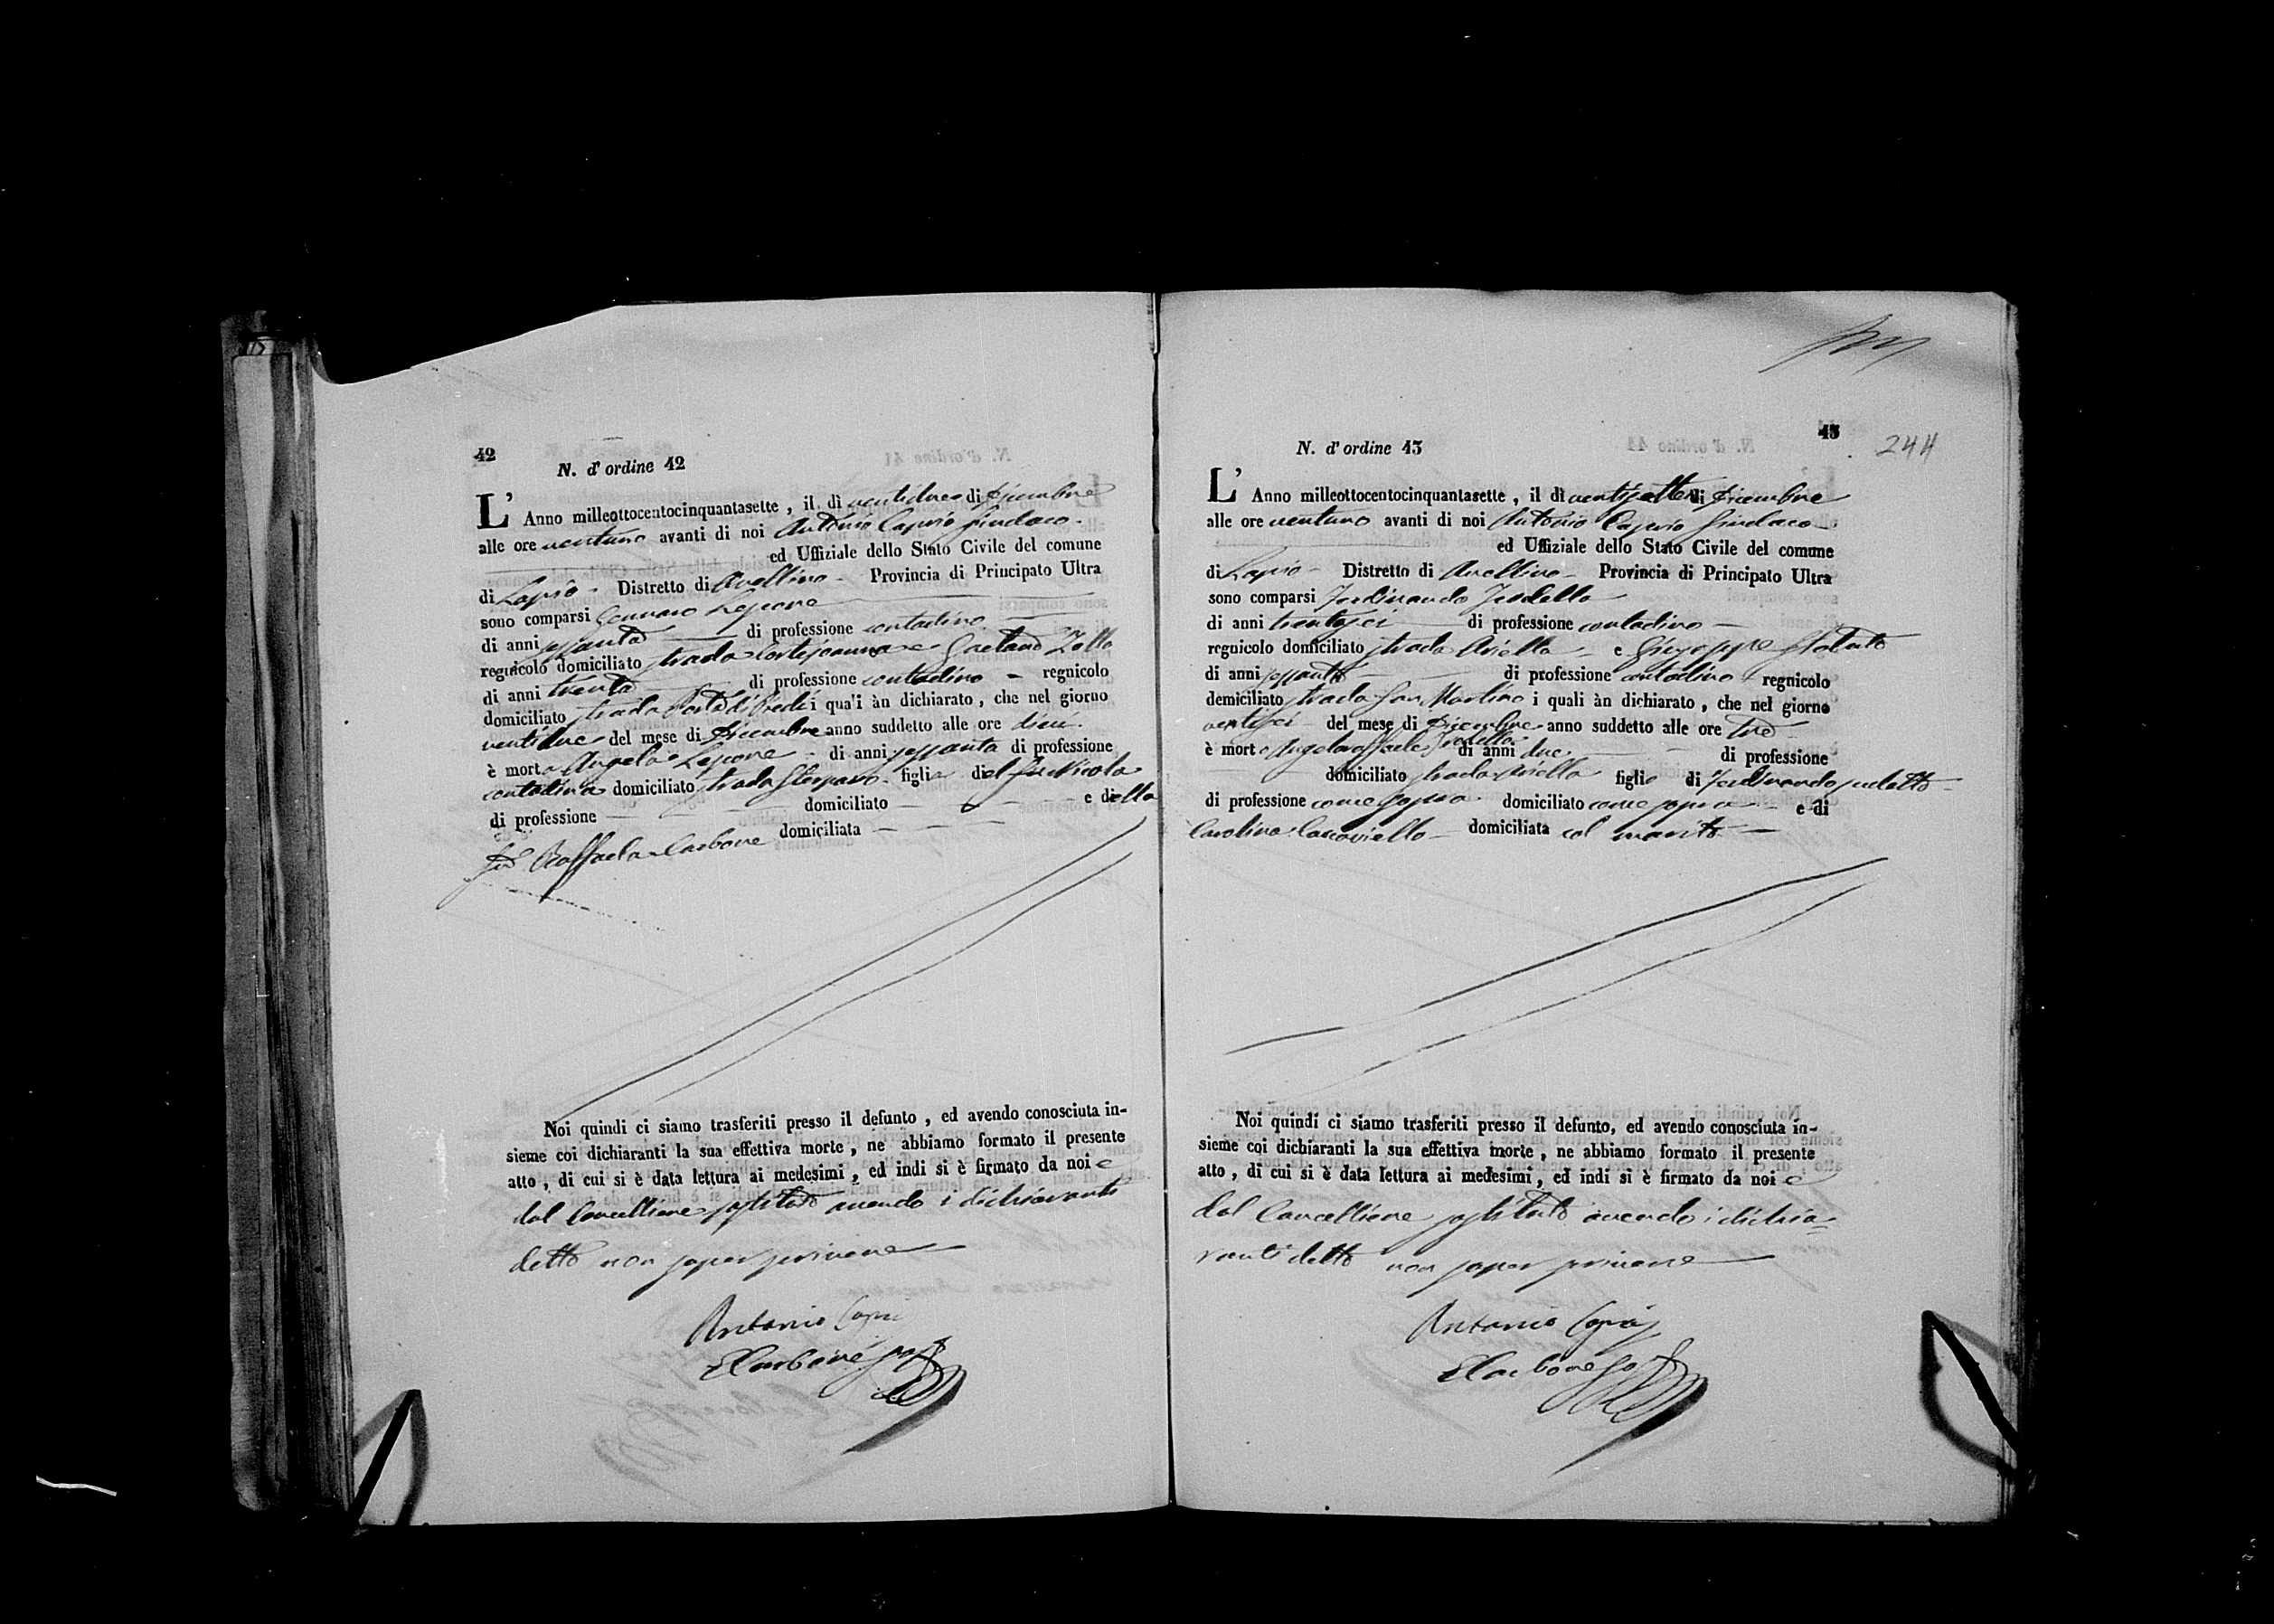 42
N. d' ordine 42
L' Anno milleottocentocinquantasette , il dì ventidue di Dicembre
alle ore ventuno avanti di noi Antonio Caprio Sindaco
ed Uffiziale dello Stato Civile del comune
di Lapio Distretto di Avellino Provincia di Principato Ultra
sono comparsi Gennaro Lepore
di anni sessanta di professione contadino
regnicolo domiciliato strada e Gaetano Zollo
di anni trenta di professione contadino regnicolo
domiciliato strada i quali àn dichiarato , che nel giorno
ventidue del mese di Dicembre anno suddetto alle ore dieci
è morta Angela Lepore di anni sessanta di professione
contadina domiciliato strada figlia del fu Nicola
di professione domiciliato e della
fu Raffaela Carbone domiciliata
Noi quindi ci siamo trasferiti presso il defunto , ed avendo conosciuta in-
sieme coi dichiaranti la sua effettiva morte , ne abbiamo formato il presente
atto , di cui si è data lettura ai medesimi , ed indi si è firmato da noi e
dal Cancelliere sostituto avendo i dichiaranti
detto non saper scrivere
Antonio Caprio
ECarbone
43
244
N. d' ordine 43
L' Anno milleottocentocinquantasette , il dì ventisette di Dicembre
alle ore ventuno avanti di noi Antonio Caprio Sindaco
ed Uffiziale dello Stato Civile del comune
di Lapio Distretto di Avellino Provincia di Principato Ultra
sono comparsi Ferdinando
di anni trentasei di professione contadino
regnicolo domiciliato strada Ariella e Giuseppe
di anni sessanta di professione contadino regnicolo
domiciliato strada San Martino i quali àn dichiarato , che nel giorno
ventisei del mese di Dicembre anno suddetto alle ore tre
è morto Angeloraffaele di anni due di professione
domiciliato strada Ariella figlio di Ferdinando sudetto
di professione come sopra domiciliato come sopra e di
Carolina Carcoviello domiciliata col marito
Noi quindi ci siamo trasferiti presso il defunto, ed avendo conosciuta in-
sieme coi dichiaranti la sua effettiva morte , ne abbiamo formato il presente
atto , di cui si è data lettura ai medesimi , ed indi si è firmato da noi e
dal Cancelliere sostituto avendo i dichia=
ranti detto non saper scrivere
Antonio Caprio
ECarbone